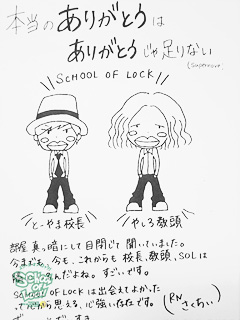 本当のありがとうは
ありがとうじゃ足りない
(supernova
SCHOOL OF LOCK
とーやま校長
やしろ教頭
部屋真っ暗にして目閉じて聞いていました。
今までも、今も、これからも 校長、教頭、SOLは
んだよね。すごいです。
SCHOOL OF LOCKは出会えてよかった
って 思える、心強い存在です。
(RN さくあい)